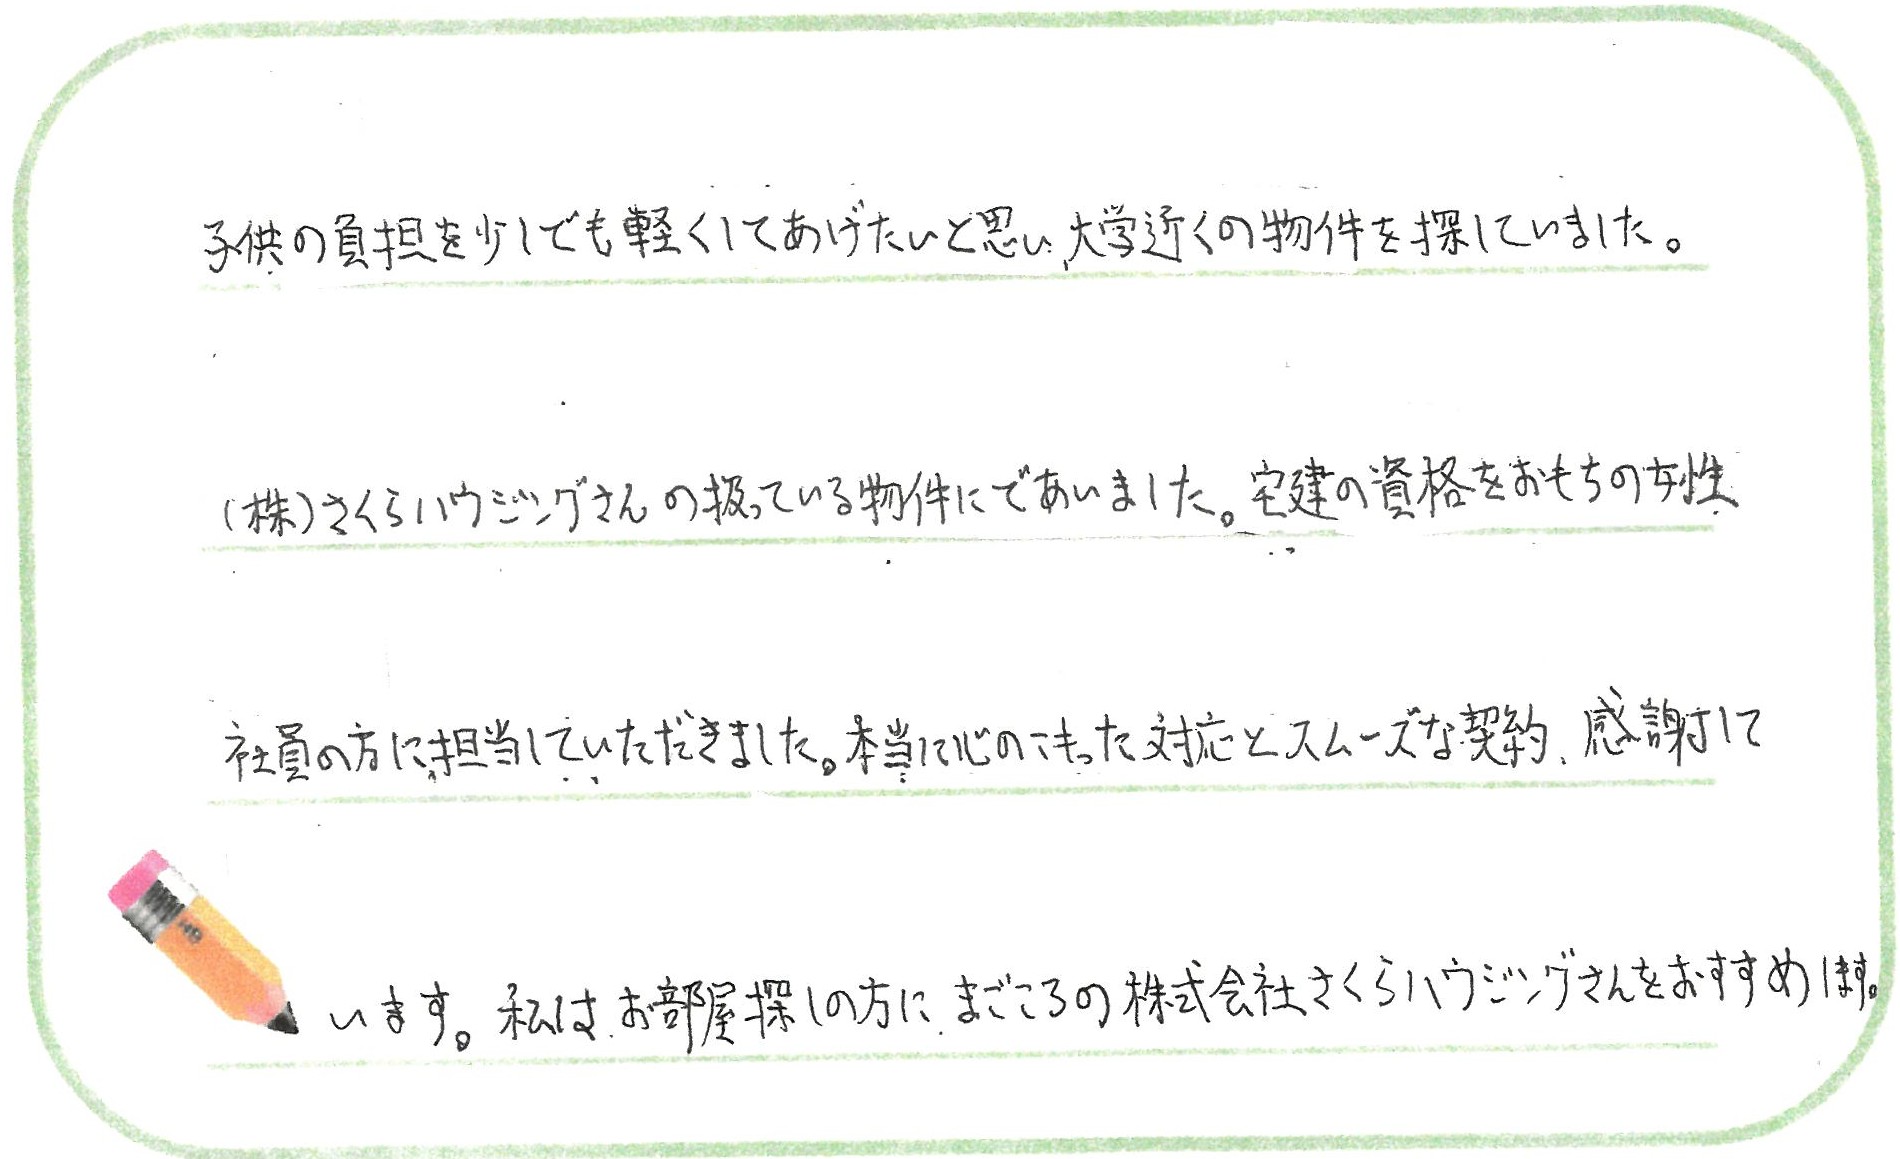 子供の負担を少しでも軽くしてあげたいと思い、大学近くの物件を探していました。
(株)さくらハウジングさんの扱っている物件にであいました。宅建の資格をおもちの女性
社員の方に担当していただきました。本当に心のこもった対応とスムーズな契約、感謝して
います。私はお部屋探しの方に、まごころの株式会社さくらハウジングさんをおすすめします。
HB